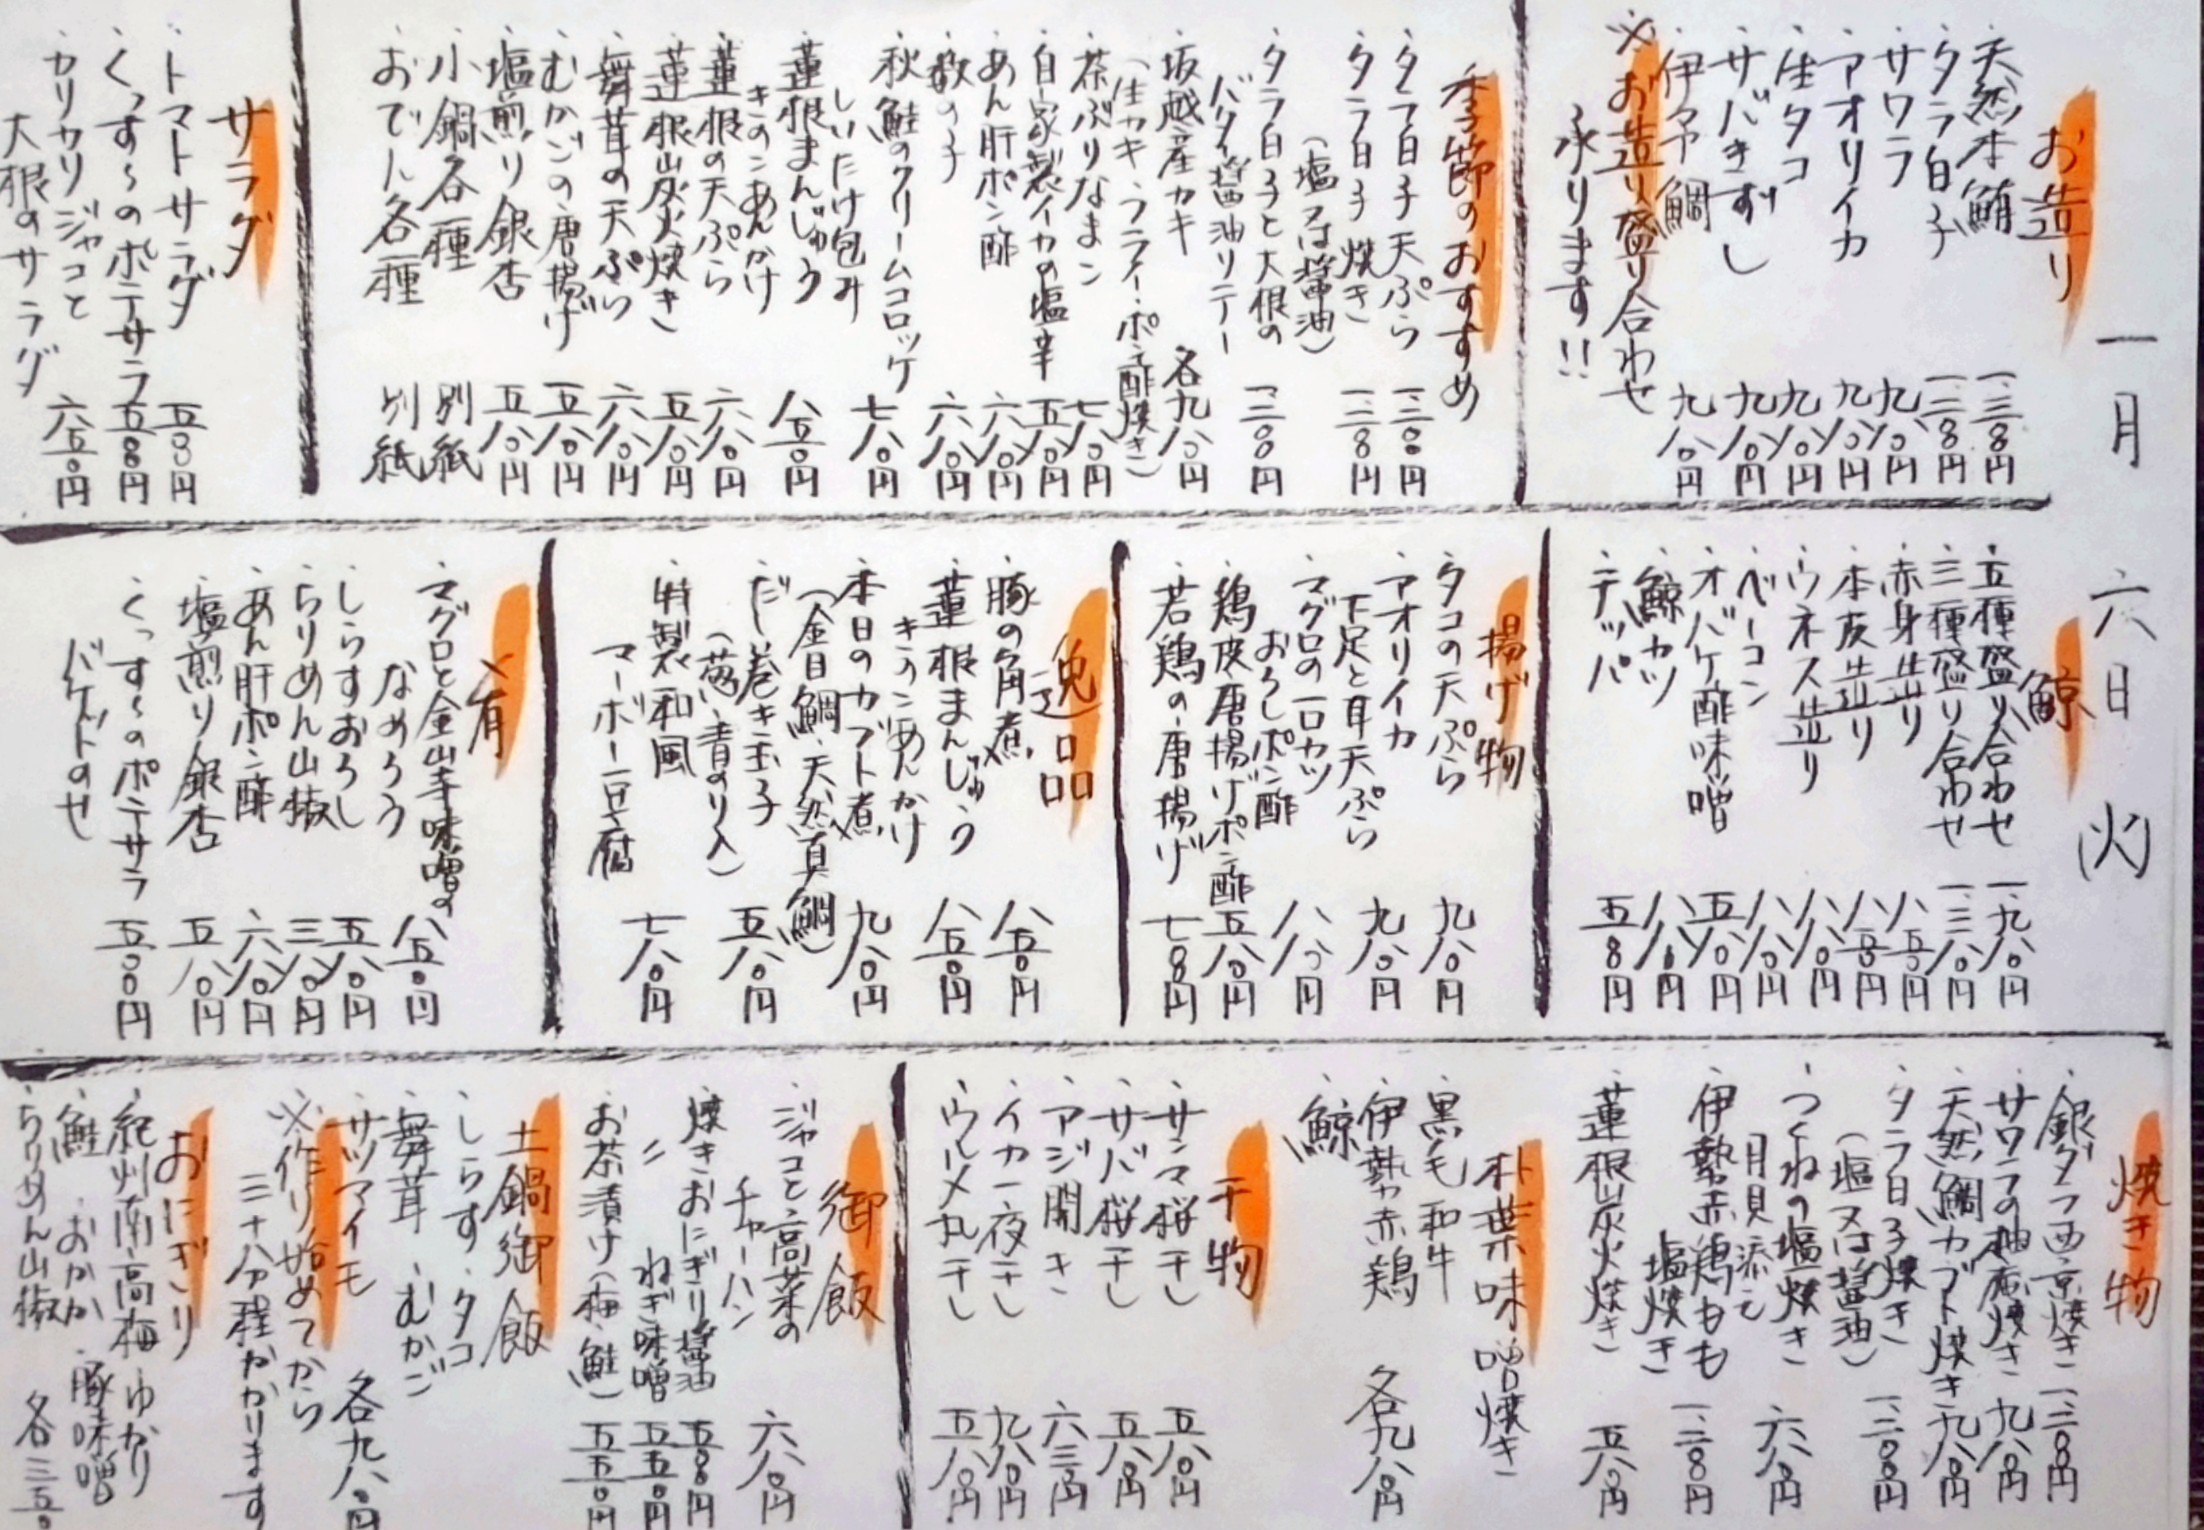 一月六日(火)
お造り
・天然本鮪 一、三〇〇円
・タラ白子 一、三〇〇円
・サワラ 九八〇円
・アオリイカ 九八〇円
・生タコ 九八〇円
・サバきずし 九八〇円
・伊予鯛 九八〇円
※お造り盛り合わせ
承ります!!
季節のおすすめ
・タラ白子天ぷら 一、三〇〇円
・タラ白子焼き
(塩又は醤油) 一、三〇〇円
・タラ白子と大根の
バター醤油ソテー 一、三〇〇円
・坂越産カキ
(生カキ・フライ・ポン酢焼き) 各九八〇円
・茶ぶりなまこ 七八〇円
・自家製イカの塩辛 五八〇円
・あん肝ポン酢 六八〇円
・数の子 六八〇円
・秋鮭のクリームコロッケ
しいたけ包み 七八〇円
・蓮根まんじゅう
きのこあんかけ 八五〇円
・蓮根の天ぷら 六八〇円
・蓮根炭火焼き 五八〇円
・舞茸の天ぷら 六八〇円
・むかごの唐揚げ 五八〇円
・塩煎り銀杏 五八〇円
・小鍋各種 別紙
・おでん各種 別紙
サラダ
・トマトサラダ 五〇〇円
・くっす〜のポテサラ 五〇〇円
・カリカリジャコと
大根のサラダ 六五〇円
鯨
・五種盛り合わせ 一、九八〇円
・三種盛り合わせ 一、三八〇円
・赤身造り 八五〇円
・本皮造り 八五〇円
・ウネス造り 八八〇円
・ベーコン 八八〇円
・オバケ酢味噌 五八〇円
・鯨カツ 八八〇円
・テッパ 五八〇円
揚げ物
・タコの天ぷら 九八〇円
・アオリイカ
下足と耳天ぷら 九八〇円
・マグロの一口カツ
おろしポン酢 八八〇円
・鶏皮唐揚げポン酢 五八〇円
・若鶏の唐揚げ 七〇〇円
逸品
・豚の角煮 八五〇円
・蓮根まんじゅう
きのこあんかけ 八五〇円
・本日のカブト煮
(金目鯛・天然真鯛) 九八〇円
・だし巻き玉子
(葱・青のり入) 五八〇円
・特製和風
マーボー豆腐 七八〇円
肴
・マグロと金山寺味噌の
なめろう 八五〇円
・しらすおろし 五八〇円
・ちりめん山椒 三八〇円
・あん肝ポン酢 六八〇円
・塩煎り銀杏 五八〇円
・くっす〜のポテサラ
バケットのせ 五〇〇円
焼き物
・銀ダラ西京焼き 一、三〇〇円
・サワラの柚庵焼き 九八〇円
・天然鯛カブト焼き 九八〇円
・タラ白子焼き
(塩又は醤油) 一、三〇〇円
・つくねの塩焼き
月見添え 六八〇円
・伊勢赤鶏もも
塩焼き 一、三〇〇円
・蓮根炭火焼き 五八〇円
朴葉味噌焼き
・黒毛和牛
・伊勢赤鶏 各九八〇円
・鯨
干物
・サンマ桜干し 五八〇円
・サバ桜干し 五八〇円
・アジ開き 六三〇円
・イカ一夜干し 九八〇円
・ウルメ丸干し 五八〇円
御飯
・ジャコと高菜の
チャーハン 六八〇円
・焼きおにぎり醤油 五〇〇円
・〃 ねぎ味噌 五五〇円
・お茶漬け(梅・鮭) 五五〇円
土鍋御飯
・しらす・タコ
・舞茸・むかご
・サツマイモ 各九八〇円
※作り始めてから
三十分程かかります
おにぎり
・紀州南高梅・ゆかり
・鮭・おかか・豚味噌
・ちりめん山椒 各三五〇